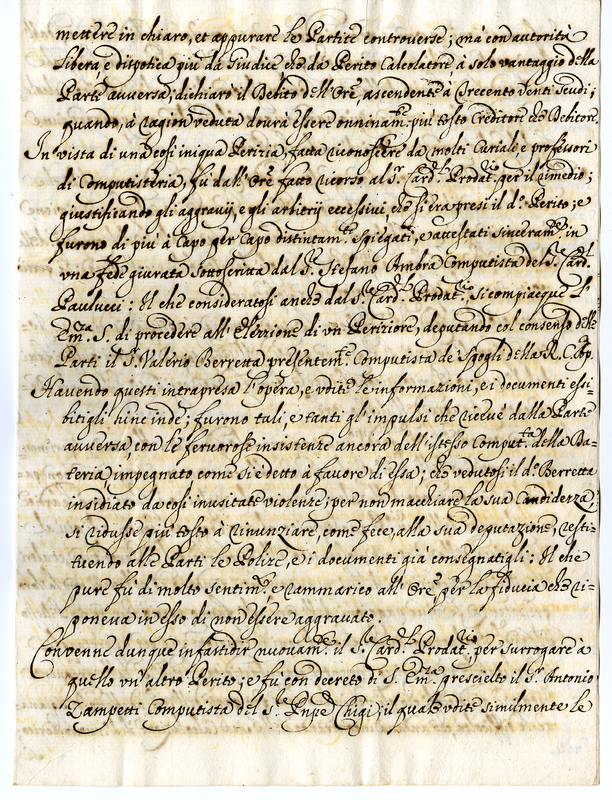 mettere in chiaro, et appurare le Partite controverse; mà con autorità
libera, e dispotica più da Giudice che da Perito Calcolatore à solo vantaggio della
Parte avversa, dichiarò il Debito dell'Ore, ascendente à Trecento venti Scudi;
quando, à ragion veduta dovrà essere onninam.te più tosto Creditore che Debitore.
In vista di una così iniqua Perizia, fatta riconoscere da molti Curiali e professori
di Computisteria, fù dall'Ore fatto ricorso al S.r Card.l Prodat.rio per il rimedio;
giustificando gli aggravij, e gli arbitrij eccessivi, che si era presi il d.o Perito; e
furono di più à Capo per Capo distintam.te spiegati, e attestati sinceram.te in
una fede giurata sottoscritta dal S.r Stefano Ambra Computista del S.r Card.l
Paulucci: Il che consideratosi anche dal S.r Card.l Prodat.rio, si compiacque l'
Em.za S. di procedere all'elezzione di un Periziore, deputando col consenso delle
Parti il S.r Valerio Berretta presentem.te Computista de Spogli della R. C. Ap.
Havendo questi intrapresa l'opera, e udite le informazioni, e i documenti essi-
bitigli hinc inde; furono tali, e tanti gl'impulsi che ricevè dalla Parte
avversa con le fervorose insistenze ancora dell'istesso Comput.ta della Da-
teria impegnato come si è detto à favore di essa; che vedutosi il d.o Berretta
insidiato da così inusitate violenze; per non macchiare la sua Candidezza,
si ridusse più tosto à rinunziare, come fece, alla sua deputazione, resti-
tuendo alle Parti le Polize, e i documenti già consegnatigli; Il che
pure fù di molto sentim.to, e rammarico all'Ore, per la fiducia che ri-
poneva in esso di non essere aggravato.
Convenne dunque infastidir nuovam.te il S.r Card.l Prodat.rio, per surrogare à
quello un'altro Perito; e fù con decreto di S. Em.za prescielto il S.r Antonio
Zampetti Computista del S.r Pnpe Chigi; il quale udite similmente le